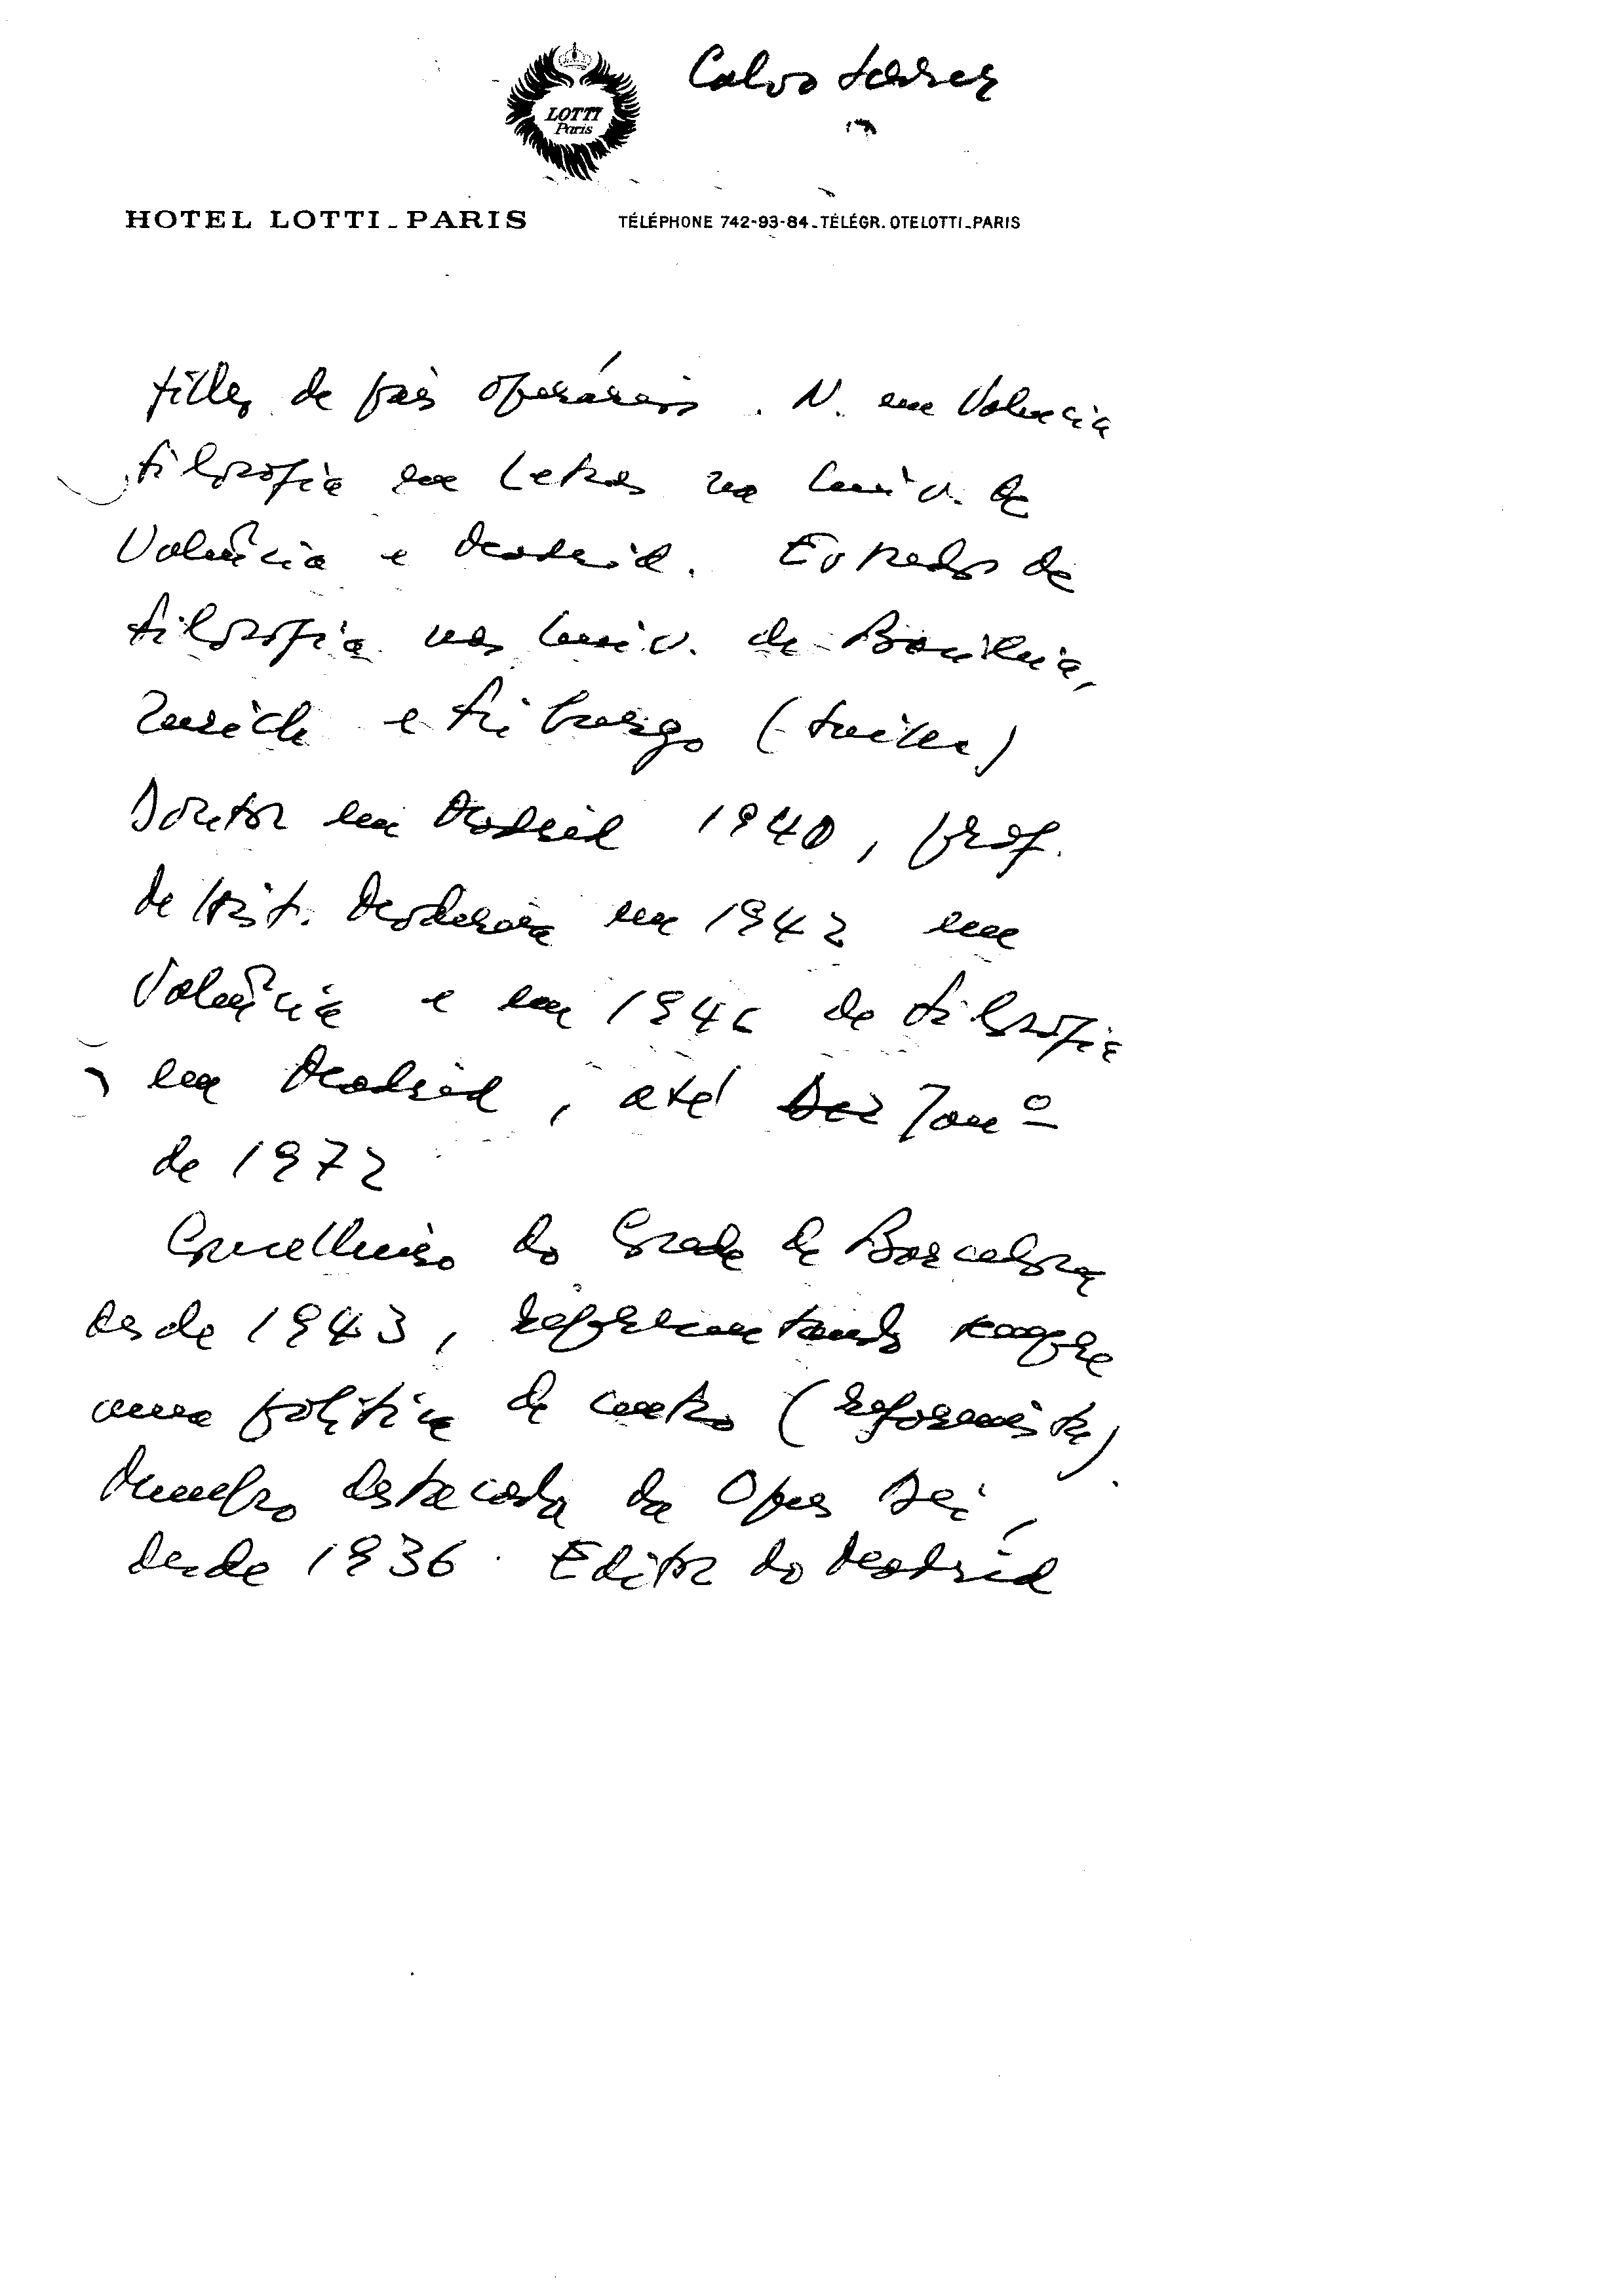 Calvo Serer
LOTTI
Paris
HOTEL LOTTI_PARIS TÉLÉPHONE 742-93-84_TÉLÉGR. OTELOTTI_PARIS
Filho de pais operários. N. em Valencia
Filosofia em Letras na Univ. de
Valência e Madrid. Estudos de
Filosofia nas Univ. de
Zurich e Friburgo (Suiça)
Doutor em Madrid 1940, prof.
de Hist. Moderna em 1942 em
Valência e em 1946 de Filosofia
em Madrid, até Dez Janº
de 1972
Conselheiro do Conde de Barcelona
desde 1943, representando sempre
uma política de centro (reformista).
Membro destacado da Opus Dei,
desde 1936. Editor do Madrid